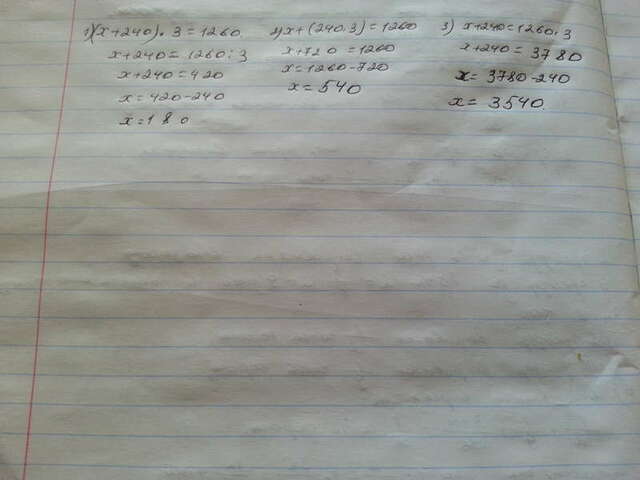 1)(x+240)·3=1260.
x+240=1260:3
x+240=420
x=420-240
x=180
2)x+(240·3)=1260
x+720=1260
x=1260-720
x=540
3) x+240=1260·3
x+240=3780
x=3780-240
x=3540.